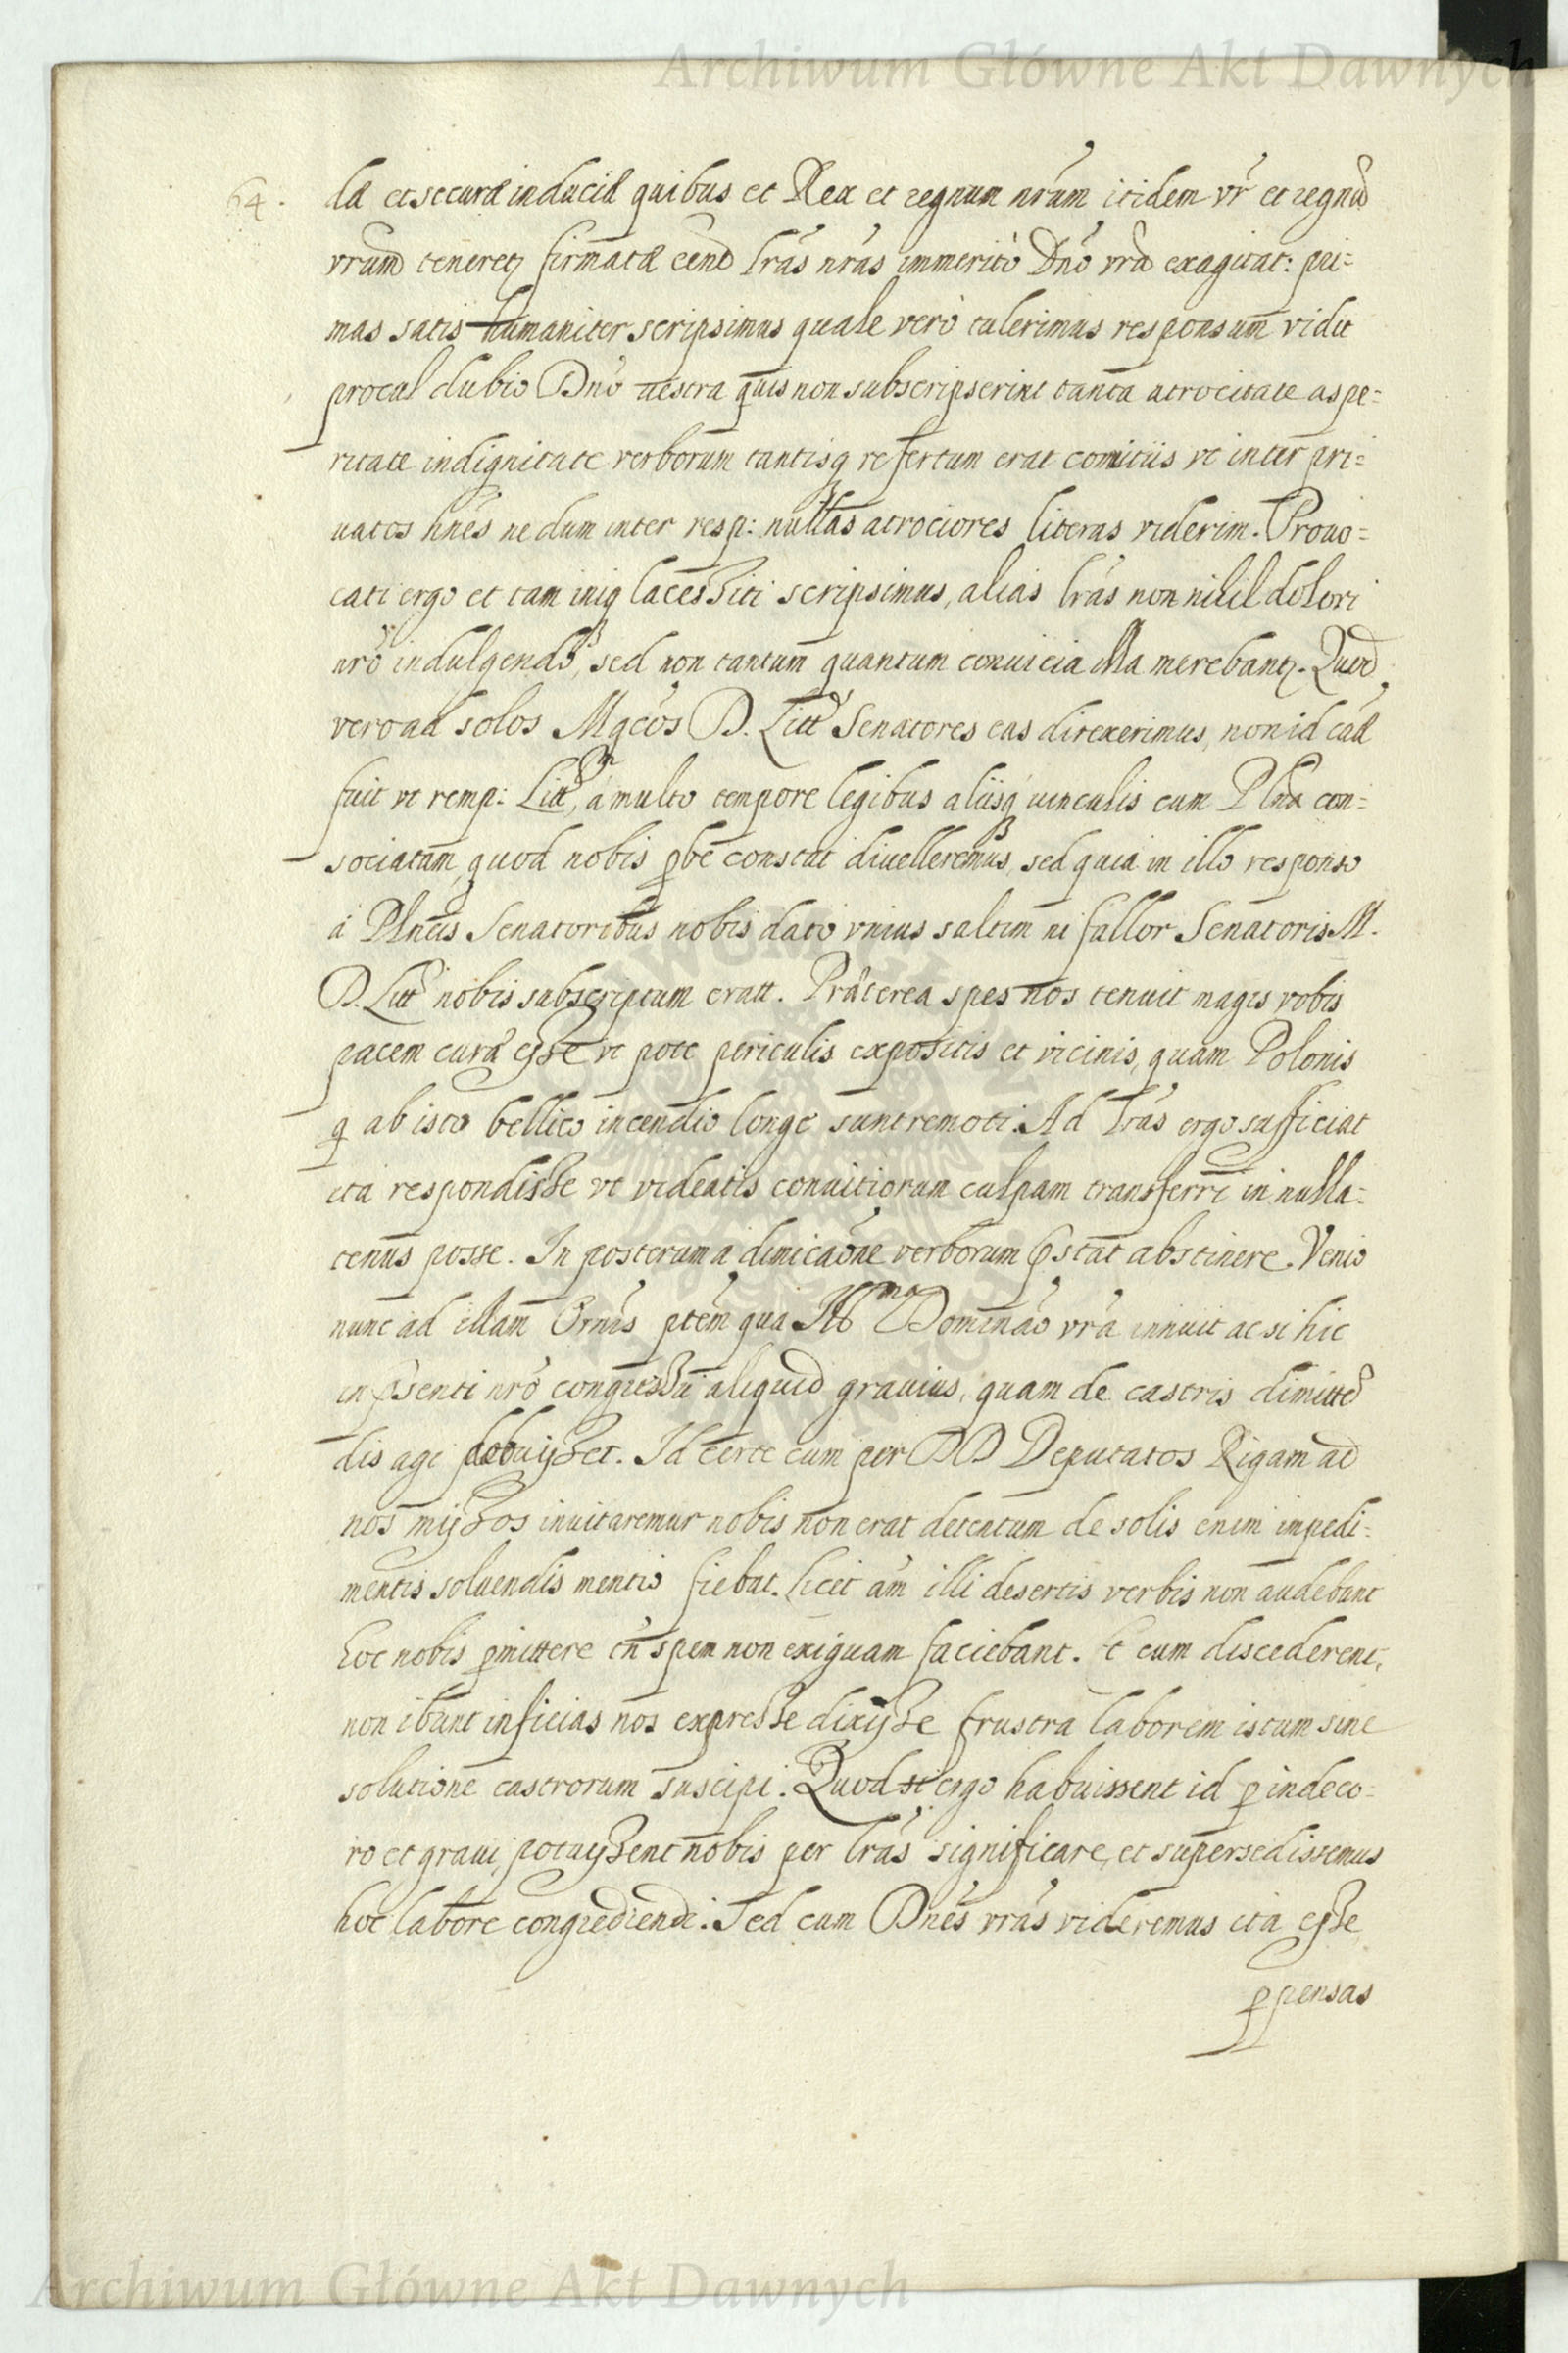 Archiwum Główne Akt Dawnych
64.
dæ et securæ induciæ quibus et Rex et regnum nrũm itidem vr̃ et regnũ
vrum teneretʒ firmatæ eend lrãs nrãs immeritò Dnõ vrã exagitat: pri=
mas satis humaniter scripsimus quale verò tulerimus responsum vidit
procul dubio Dnõ uestra quis non subscripserint tanta atrocitate aspe=
ritate indignitate verborum tantisq refertum erat comitiis vt inter pri=
uatos hnẽs nedum inter resp: nullas atrociores literas viderim. Prouo=
cati ergo et tam iniq lacessiti scripsimus, alias lrãs non nihil dolori
nrõ indulgendõ, sed non tantum quantum conuicia illa merebantʒ. Quod
vero ad solos Mgcõs D. Litt Senatores eas direxerimus, non id cãã
fuit vt remp: Litt, a multo tempore legibus aliisq́ uinculis cum Plnã con=
sociatam, quod nobis ꝓbe constat diuelleremus, sed quia in illo responso
à Plnẽis Senatoribus nobis dato vnius saltim ni fallor Senatoris M.
D. Litt nobis subscriptum eratt. Præterea spes nos tenuit magis vobis
pacem curæ esse vt pote periculis expositis et vicinis, quam Polonis
q ab isto bellico incendio longe sunt remoti. Ad lrãs ergo sufficiat
ita respondisse vt videatis conuitiorum culpam transferri in nulla=
tenus posse. In posterum a dimicaõne verborum ꝓstat abstinere. Venio
nunc ad illam Ornis ptẽm qua Illma Dominaõ vrã innuit ac si hic
in pñsenti nrõ congressu aliquid grauius, quam de castris dimitte
dis agi debuisset. Id certe cum per DD Deputatos Rigam ad
nos missos inuitaremur nobis non erat detentum de solis enim impedi=
mentis soluendis mentio fiebat. licet aũm illi desertis verbis non audebant
hoc nobis ꝓmittere tñ spem non exiguam faciebant. Et cum discederent,
non ibunt inficias nos expresse dixisse frustra laborem istum sine
solutione castrorum suscipi. Quod si ergo habuissent id ꝓ indeco=
ro et graui, potuissent nobis per lrãs significare, et supersedissemus
hoc labore congrediendi. Sed cum Dnẽs vrãs videremus ita esse
ꝓpensas
Archiwum Główne Akt Dawnych